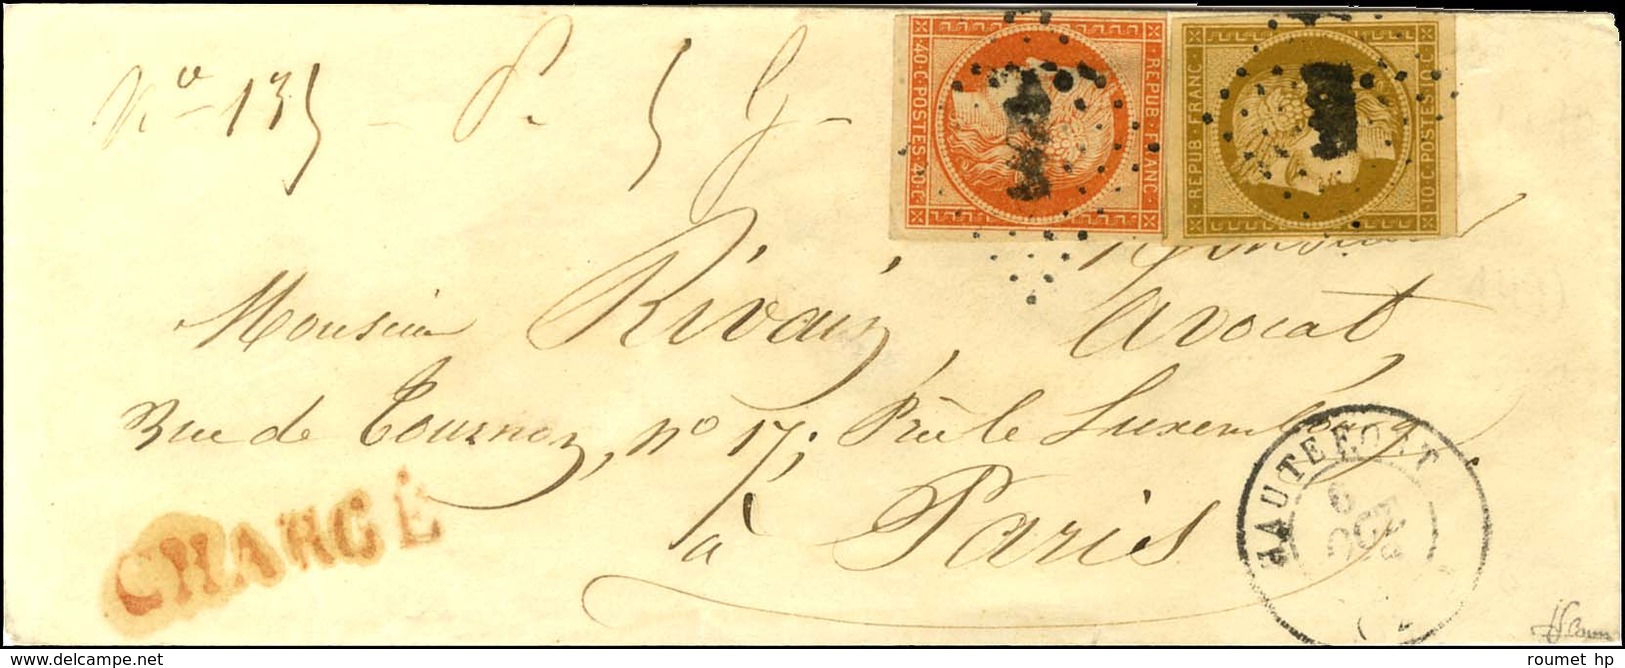 N° 135 - P. 5 G -
40·C·POSTES·40·C·
REPUB·FRANC·
REPUB·FRANC·
10·C·POSTES·10·C·
Monsieur Rivain, avocat
Rue de Tournon, n° 17, Près le Luxembourg
à Paris
CHARGÉ
HAUTEFORT
6
roumet hp